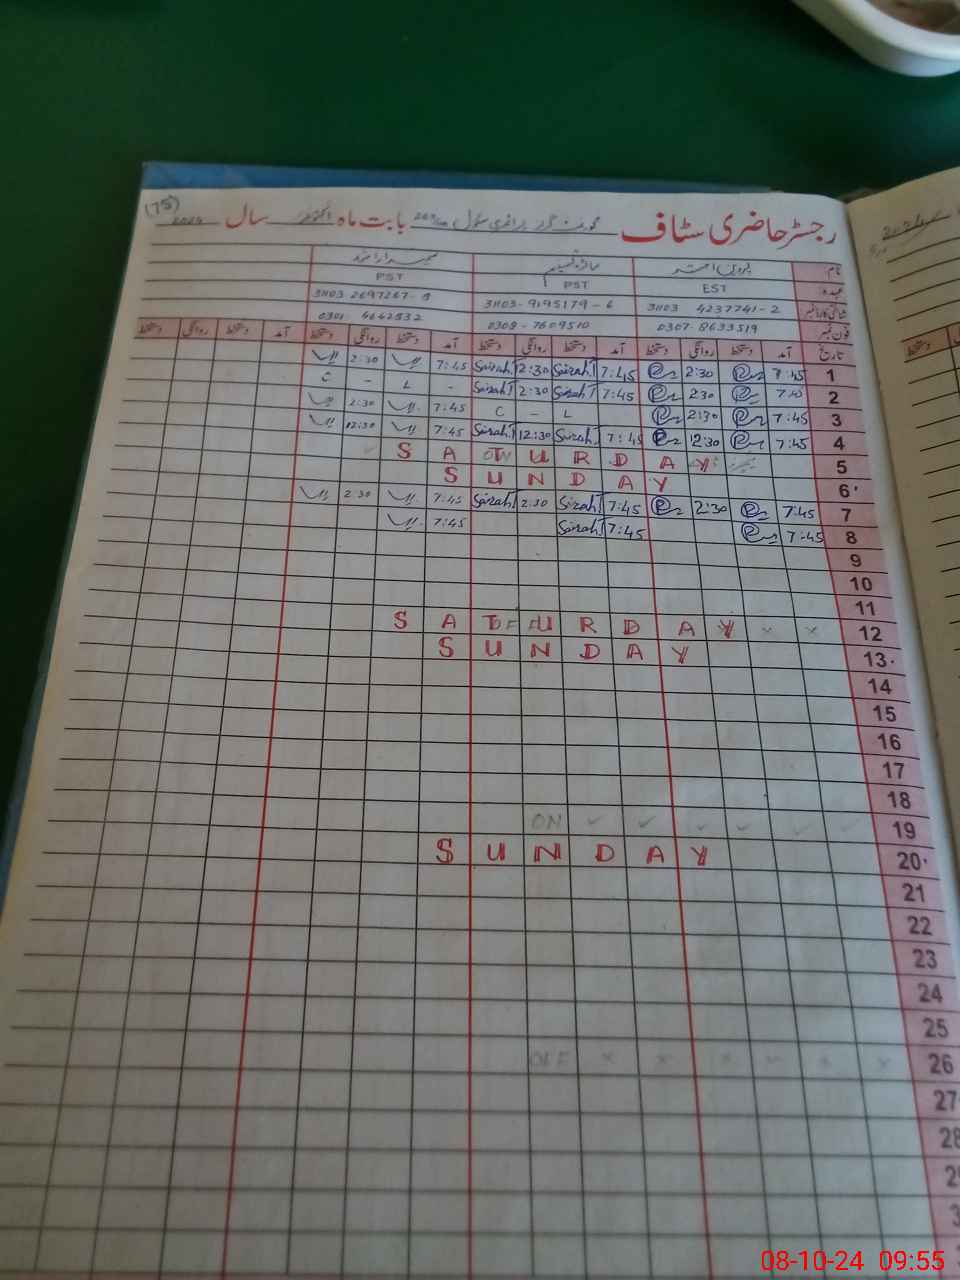 (75)
رجسٹر حاضری سٹاف گورنمنٹ گرلز پرائمری سکول بابت ماہ اکتوبر سال 2024
نام
EST PST PST عہدہ
31103 4237741-2 31103-9195179-6 شناختی کارڈ نمبر
فون نمبر 0307-8633519 0308-7609510 0301-4642832
تاریخ آمد دستخط روانگی دستخط آمد دستخط روانگی دستخط آمد دستخط روانگی دستخط آمد دستخط روانگی دستخط
1 7:45 2:30 7:45 Sairah 2:30 Sairah 7:45 2:30
2 7:45 2:30 7:45 Sairah 2:30 Sairah - L - C
3 7:45 2:30 L - C 7:45 2:30
4 7:45 12:30 7:45 Sairah 12:30 Sairah 7:45 12:30
5 SATURDAY ON
6 SUNDAY
7 7:45 2:30 7:45 Sairah 2:30 Sairah 7:45 2:30
8 7:45 7:45 Sairah 7:45
9
10
11
12 SATURDAY OFF × ×
13 SUNDAY
14
15
16
17
18
19 ON ✓ ✓ ✓ ✓ ✓ ✓
20 SUNDAY
21
22
23
24
25
26 OFF × × × × × ×
27
28
08-10-24 09:55